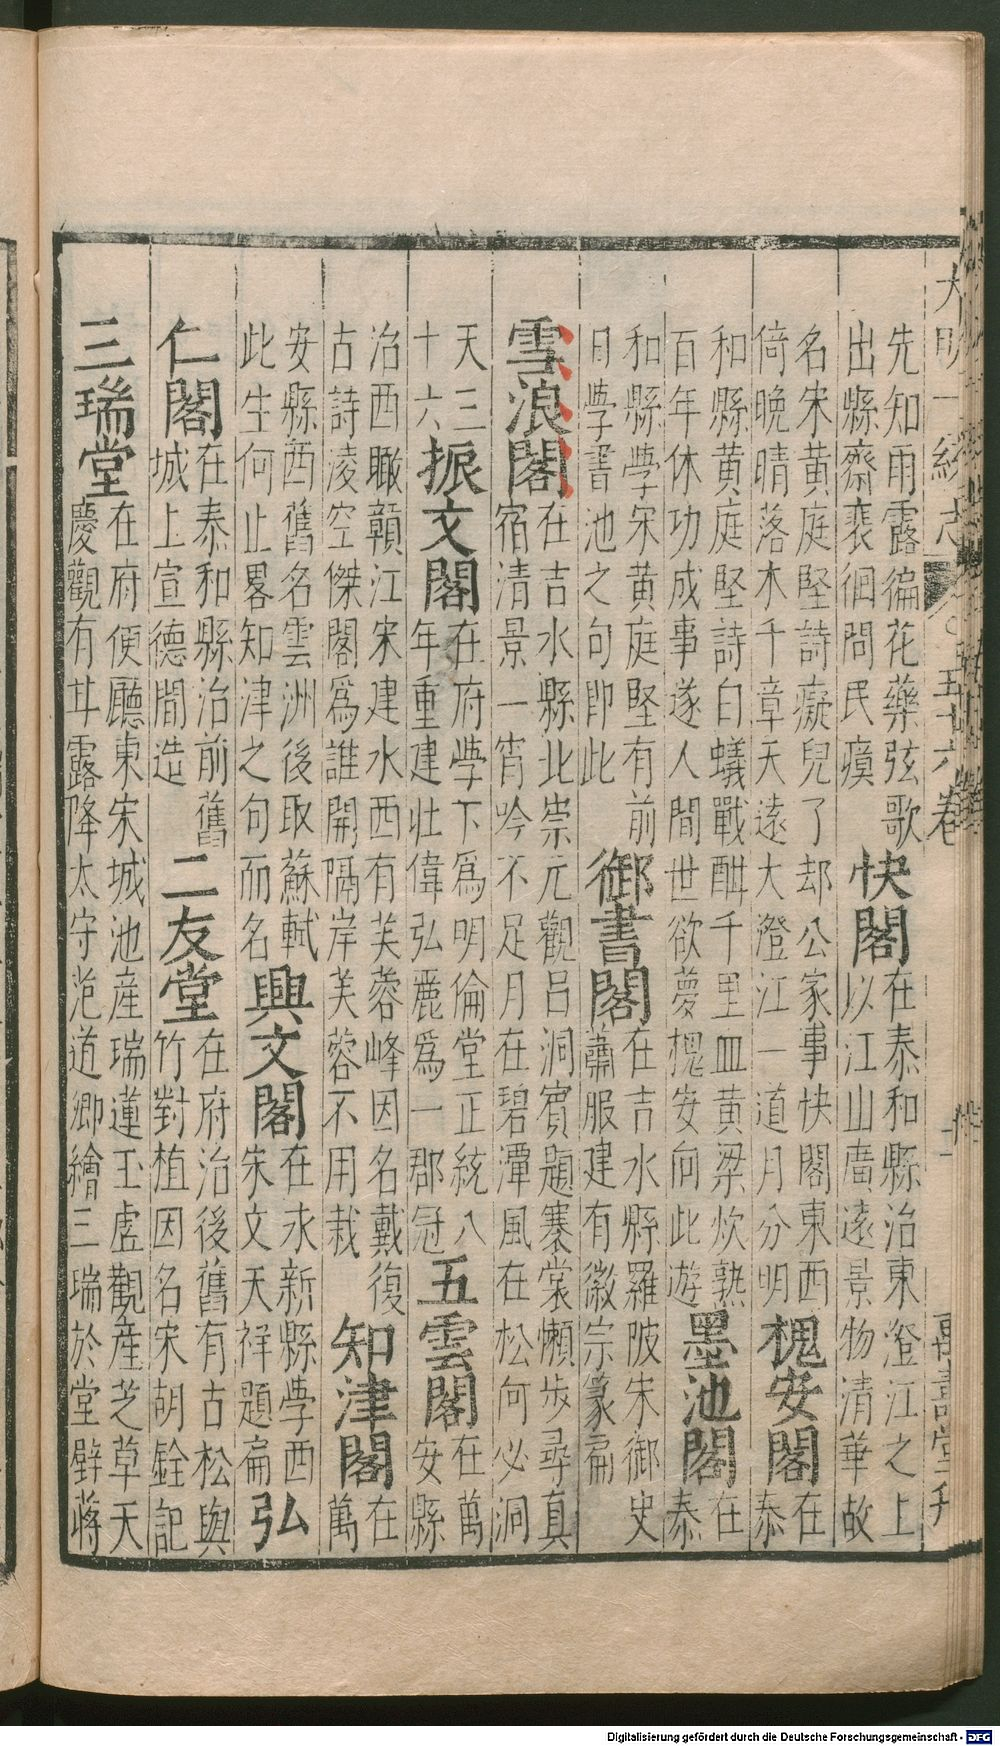 先知雨露徧花藥弦歌
出縣齋裵徊問民瘼
快閣
在泰和縣治東澄江之上
以江山廣遠景物清華故
名宋黄庭堅詩癡兒了却公家事快閣東西
倚晚晴落木千章天遠大澄江一道月分明
槐安閣
在
泰
和縣黄庭堅詩白蟻戰酣千里血黄梁炊熟
百年休功成事遂人間世欲夢槐安向此遊
墨池閣
在
泰
和縣學宋黄庭堅有前
日學書池之句即此
御書閣
在吉水縣羅陂宋御史
蕭服建有徽宗篆扁
雪浪閣
在吉水縣北崇元觀吕洞賓題褰裳懶步尋真
宿清景一宵吟不足月在碧潭風在松何必洞
天三
十六
振文閣
在府學下爲明倫堂正統八
年重建壯偉弘麗爲一郡冠
五雲閣
在萬
安縣
治西瞰贛江宋建水西有芙蓉峰因名戴復
古詩凌空傑閣爲誰開隔岸芙蓉不用栽
知津閣
在
萬
安縣西舊名雲洲後取蘇軾
此生何止畧知津之句而名
興文閣
在永新縣學西
宋文天祥題扁
弘
仁閣
在泰和縣治前舊
城上宣德間造
二友堂
在府治後舊有古松與
竹對植因名宋胡銓記
三瑞堂
在府便廳東宋城池産瑞蓮玉虚觀産芝草天
慶觀有甘露降太守范道卿繪三瑞於堂壁蔣
大明一統志
五十六卷
萬壽堂刋
Digitalisierung gefördert durch die Deutsche Forschungsgemeinschaft - DFG